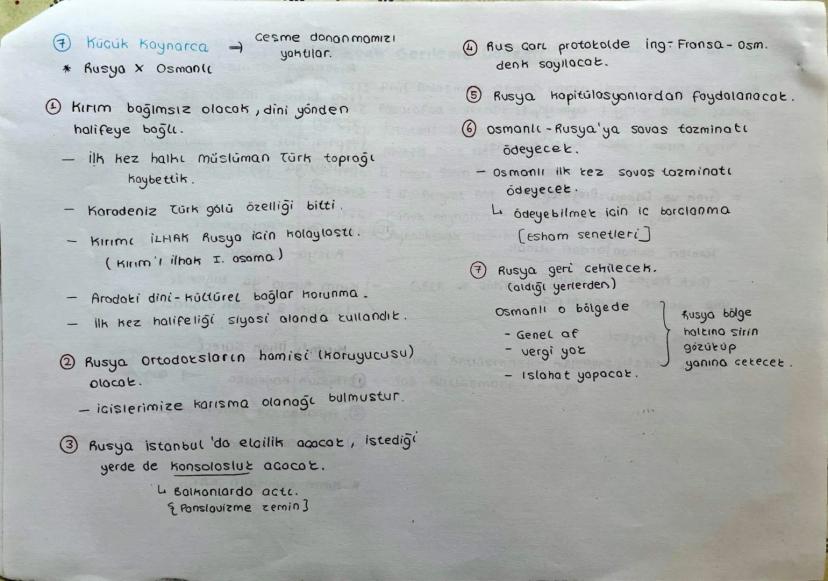 ⑦ Küçük Kaynarca → Çeşme donanmamızı
yaktılar.
* Rusya X Osmanlı
① Kırım bağımsız olacak, dini yönden
halifeye bağlı.
– İlk kez halkı müslüman Türk toprağı
kaybettik.
– Karadeniz Türk gölü özelliği bitti.
– Kırımı İLHAK Rusya için kolaylaştı.
( Kırım'ı ilhak I. aşama )
– Aradaki dini-kültürel bağlar korunma.
– İlk kez halifeliği siyasi alanda kullandık.
② Rusya Ortodoksların hamisi (koruyucusu)
olacak.
– içişlerimize karışma olanağı bulmuştur.
③ Rusya İstanbul'da elçilik açacak, istediği
yerde de konsolosluk açacak.
↳ Balkanlarda açtı.
{ Panslavizme zemin }
④ Rus Çarı protokolde ing-Fransa-Osm.
denk sayılacak.
⑤ Rusya kapitülasyonlardan faydalanacak.
⑥ Osmanlı-Rusya'ya savaş tazminatı
ödeyecek.
– Osmanlı ilk kez savaş tazminatı
ödeyecek.
↳ ödeyebilmek için iç borçlanma
[Esham senetleri]
⑦ Rusya geri çekilecek.
(aldığı yerlerden)
Osmanlı o bölgede
- Genel af
- vergi yok
- Islahat yapacak.
Rusya bölge
halkına şirin
gözüküp
yanına çekecek.